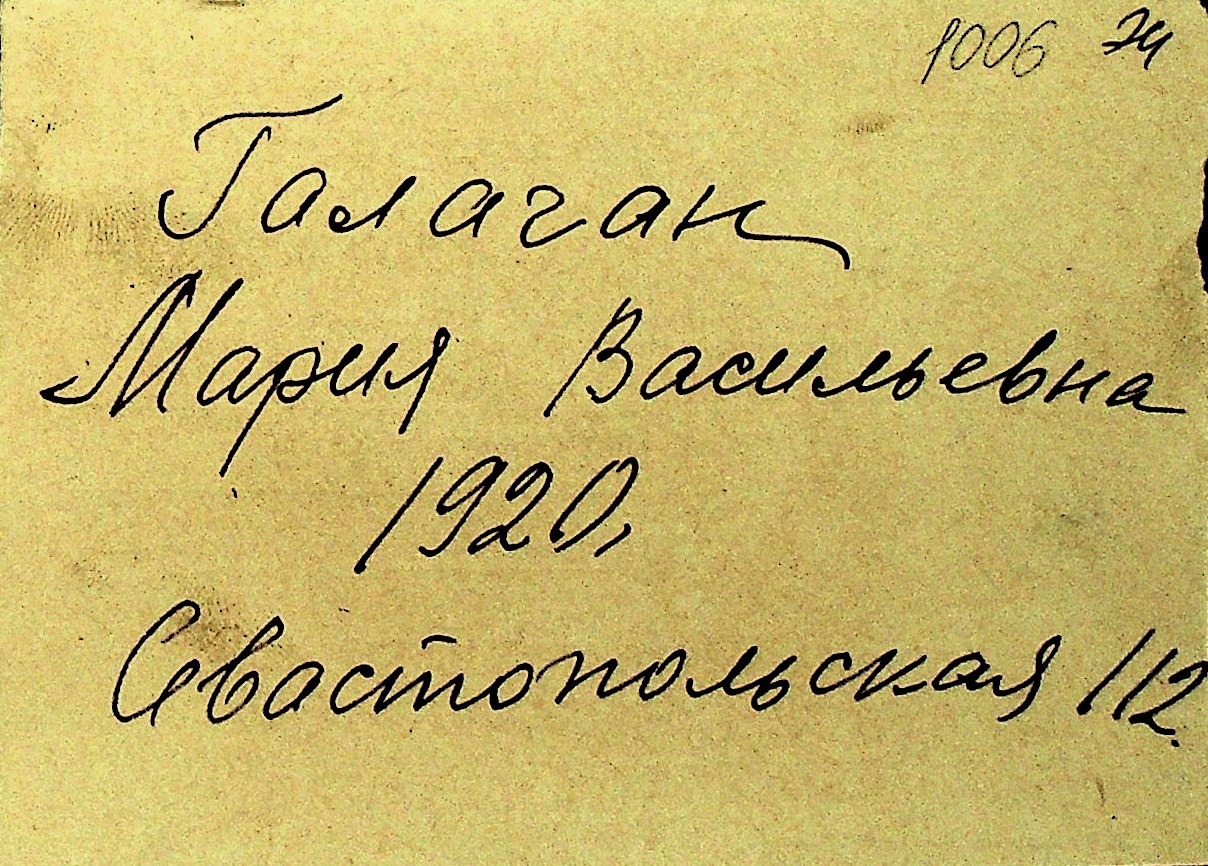 1006 74
Галаган
Мария Васильевна
1920,
Севастопольская 112.